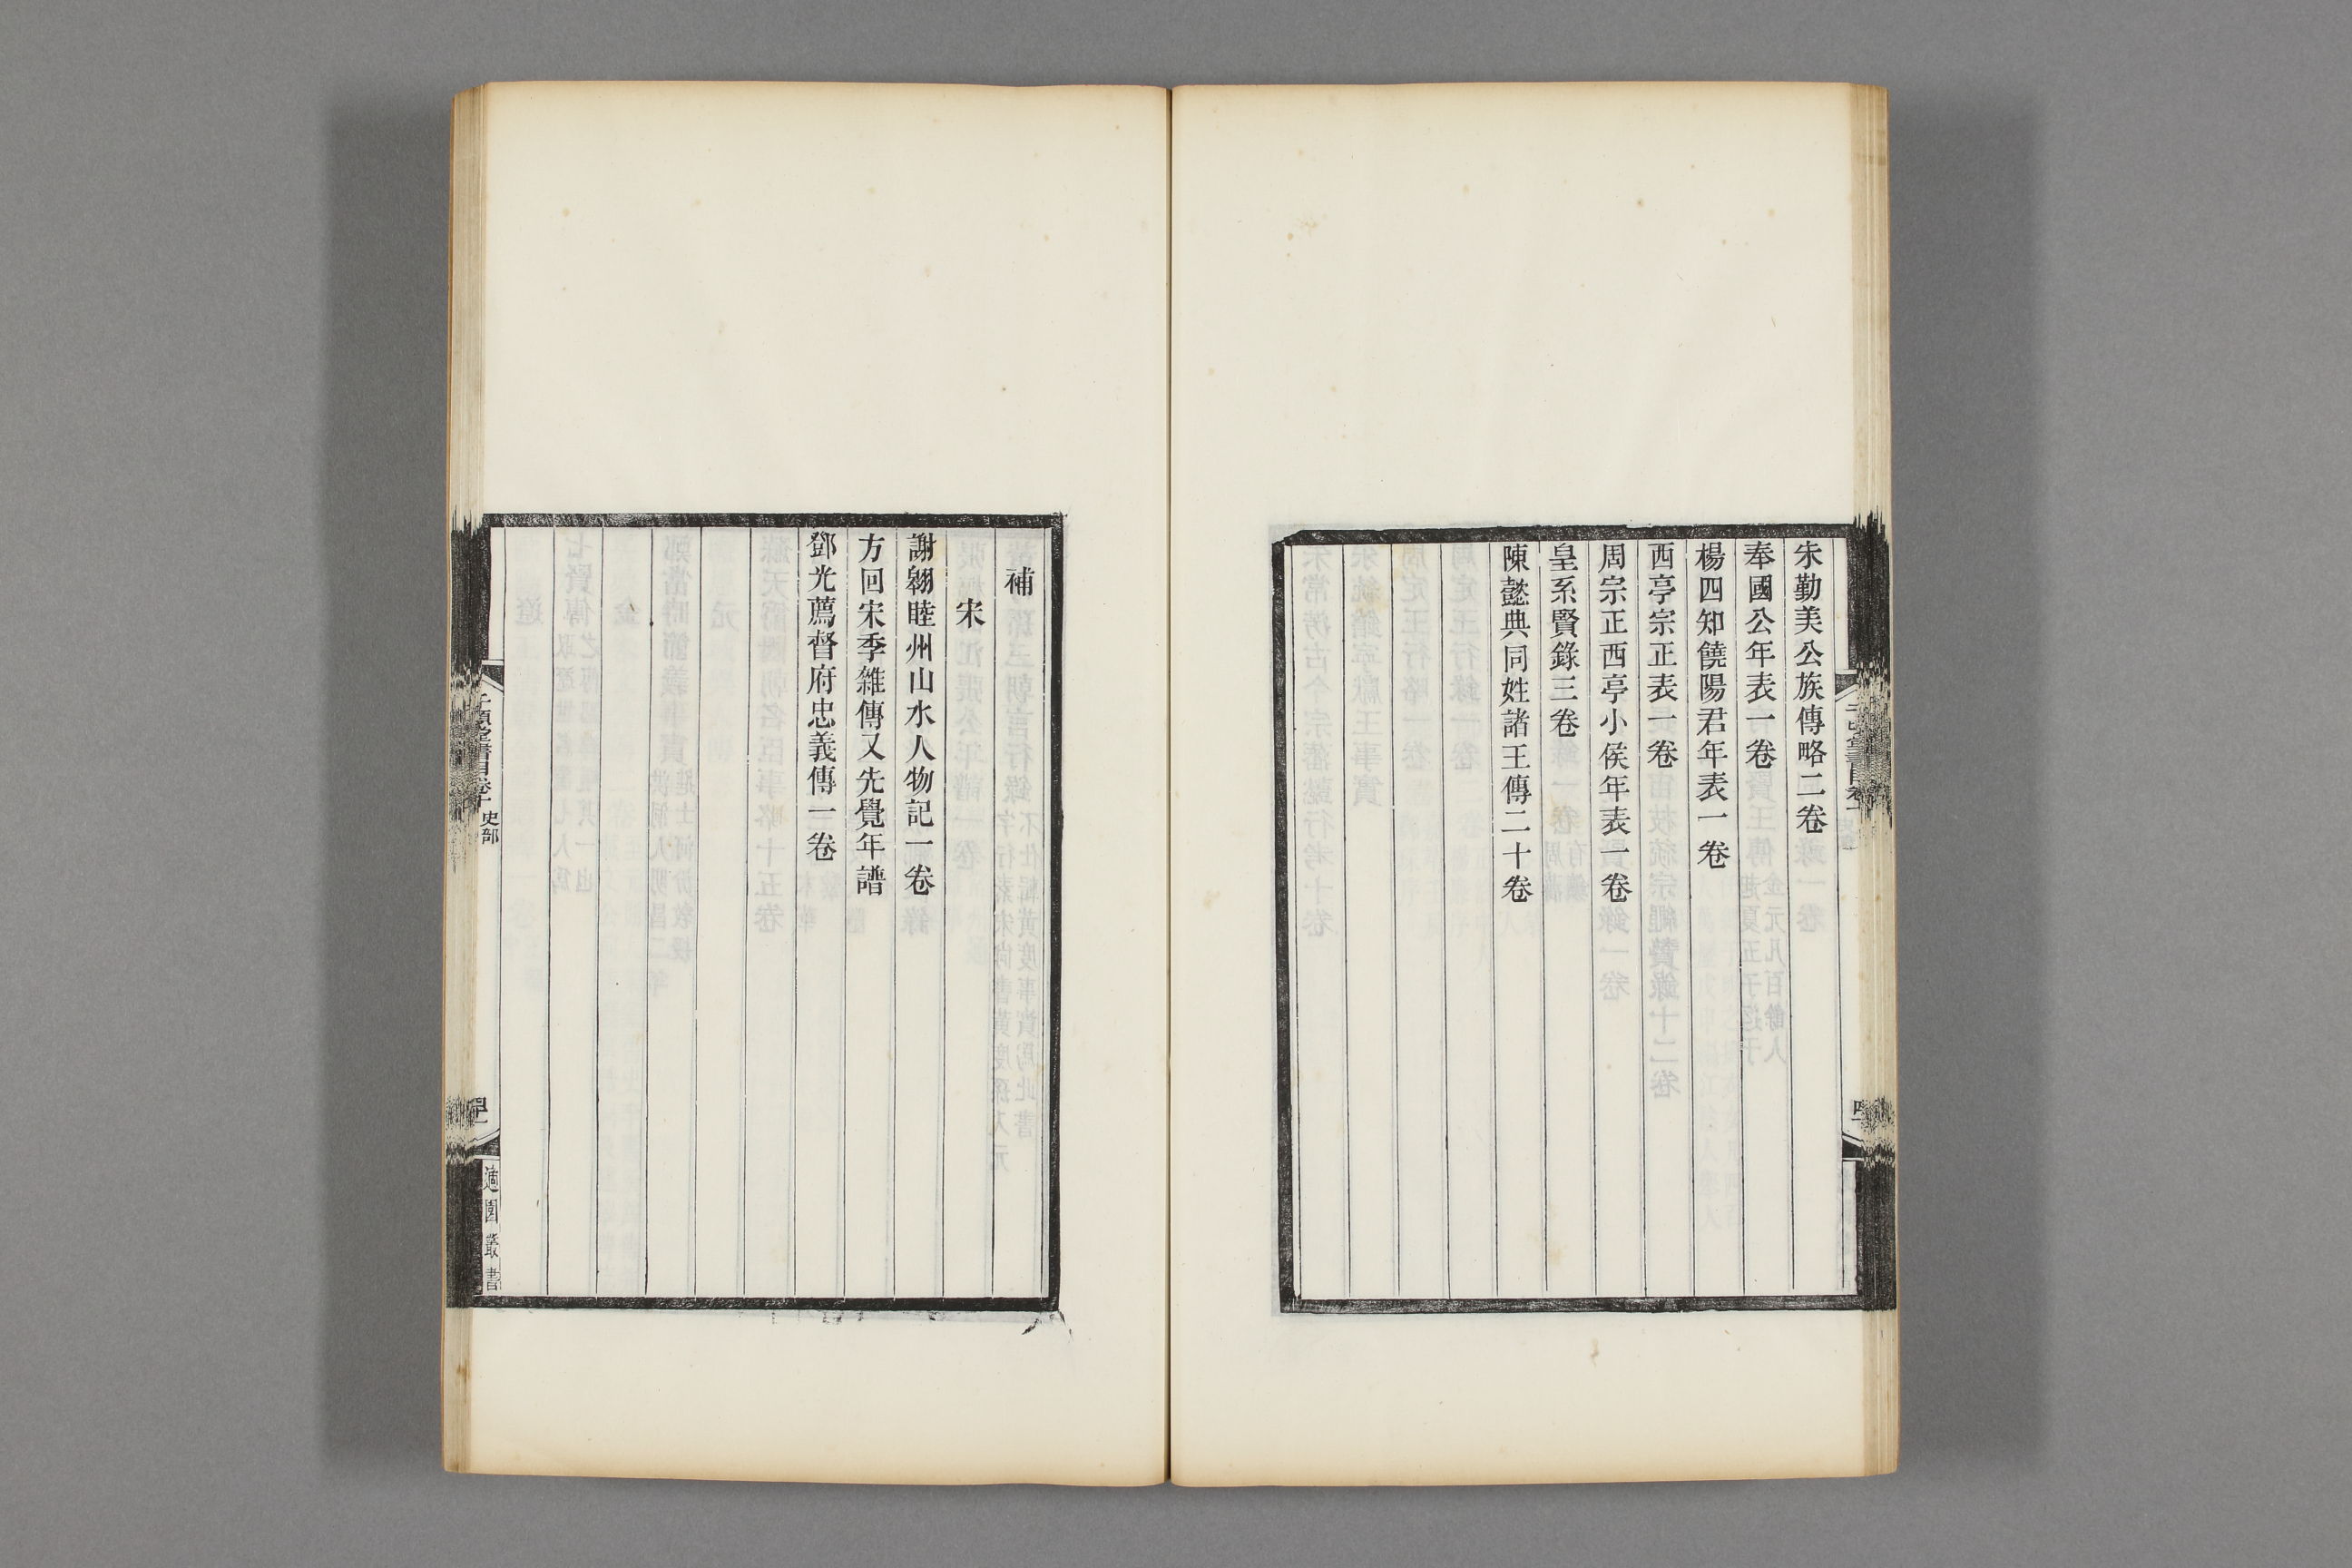 朱勤美公族傳略二卷
奉國公年表一卷
楊四知饒陽君年表一卷
西亭宗正表一卷
周宗正西亭小侯年表一卷
皇系賢錄三卷
陳懿典同姓諸王傳二十卷
補
宋
謝翱睦州山水人物記一卷
方回宋季雜傳又先覺年譜
鄧光薦督府忠義傳一卷
千頃堂書目卷十 史部
適園叢書